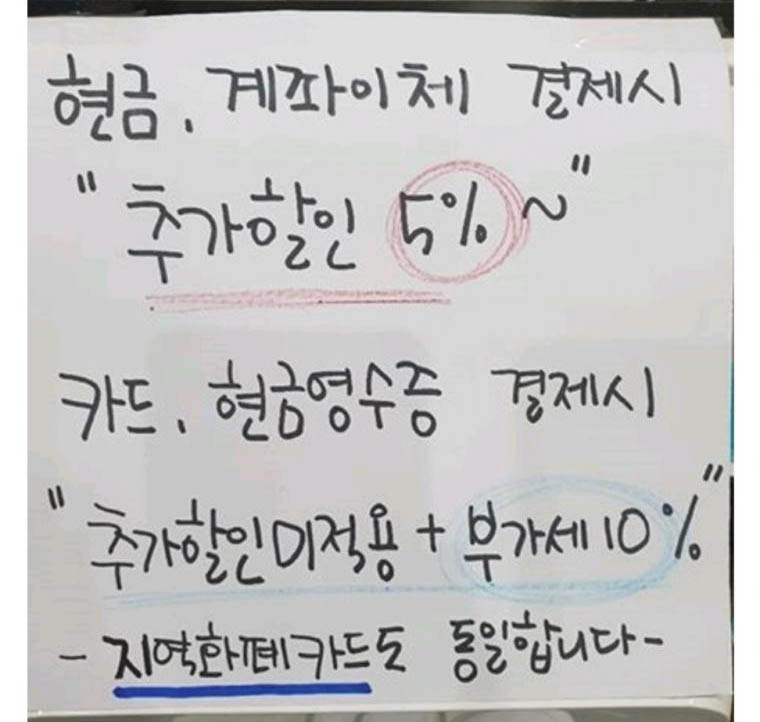 현금, 계좌이체 결제시
" 추가할인 5% ~ "
카드, 현금영수증 결제시
" 추가할인미적용 + 부가세10% "
- 지역화폐카드도 동일합니다 -